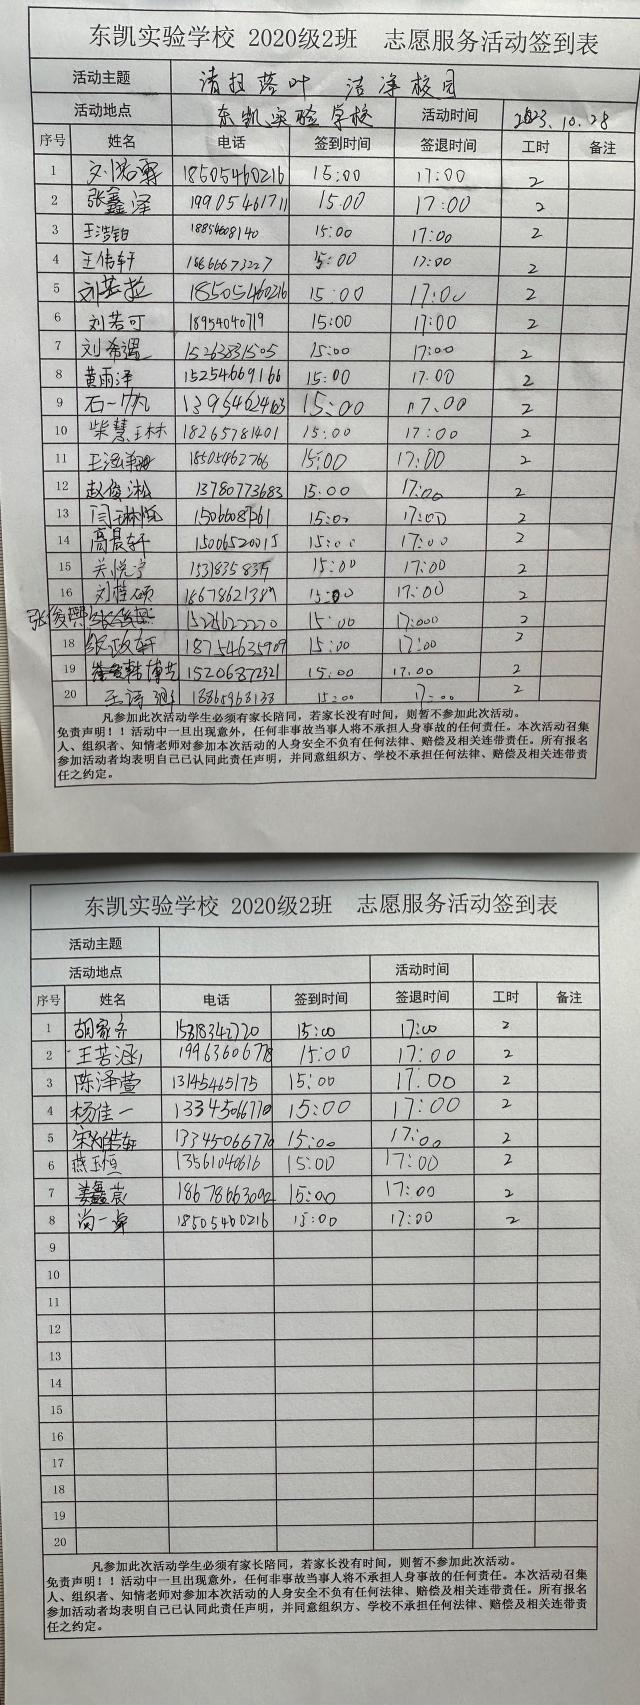 东凯实验学校 2020级2班 志愿服务活动签到表
活动主题 清扫落叶 洁净校园
活动地点 东凯实验学校 活动时间 2023.10.28
序号 姓名 电话 签到时间 签退时间 工时 备注
1 18505460216 15:00 17:00 2
2 张鑫泽 19905461711 15:00 17:00 2
3 王浩铂 15:00 17:00 2
4 王倩轩 18666673227 15:00 17:00 2
5 18505460216 15:00 17:00 2
6 刘若可 18954040719 15:00 17:00 2
7 刘希遇 15263831505 15:00 17:00 2
8 黄雨泽 15254669166 15:00 17:00 2
9 15:00 17:00 2
10 柴慧琳 18265781401 15:00 17:00 2
11 18505462766 15:00 17:00 2
12 赵俊淞 13780773683 15:00 17:00 2
13 闫琳悦 15:00 17:00 2
14 高晨轩 15006520015 15:00 17:00 2
15 15:00 17:00 2
16 15:00 17:00 2
15:00 17:000 2
18 18754635909 15:00 17:00 2
19 15206872321 15:00 17:00 2
20 18865968138 15:00 17:00 2
凡参加此次活动学生必须有家长陪同，若家长没有时间，则暂不参加此次活动。
免责声明！！活动中一旦出现意外，任何非事故当事人将不承担人身事故的任何责任。本次活动召集
人、组织者、知情老师对参加本次活动的人身安全不负有任何法律、赔偿及相关连带责任。所有报名
参加活动者均表明自己已认同此责任声明，并同意组织方、学校不承担任何法律、赔偿及相关连带责
任之约定。
东凯实验学校 2020级2班 志愿服务活动签到表
活动主题
活动地点 活动时间
序号 姓名 电话 签到时间 签退时间 工时 备注
1 胡家齐 15318342720 15:00 17:00 2
2 王若涵 19963606778 15:00 17:00 2
3 陈泽萱 13145465175 15:00 17:00 2
4 杨佳一 13345066770 15:00 17:00 2
5 13345066770 15:00 17:00 2
6 燕玉恒 13561040616 15:00 17:00 2
7 姜鑫宸 18678663092 15:00 17:00 2
8 尚一卓 18505460216 15:00 17:00 2
9
10
11
12
13
14
15
16
17
18
19
20
凡参加此次活动学生必须有家长陪同，若家长没有时间，则暂不参加此次活动。
免责声明！！活动中一旦出现意外，任何非事故当事人将不承担人身事故的任何责任。本次活动召集
人、组织者、知情老师对参加本次活动的人身安全不负有任何法律、赔偿及相关连带责任。所有报名
参加活动者均表明自己已认同此责任声明，并同意组织方、学校不承担任何法律、赔偿及相关连带责
任之约定。